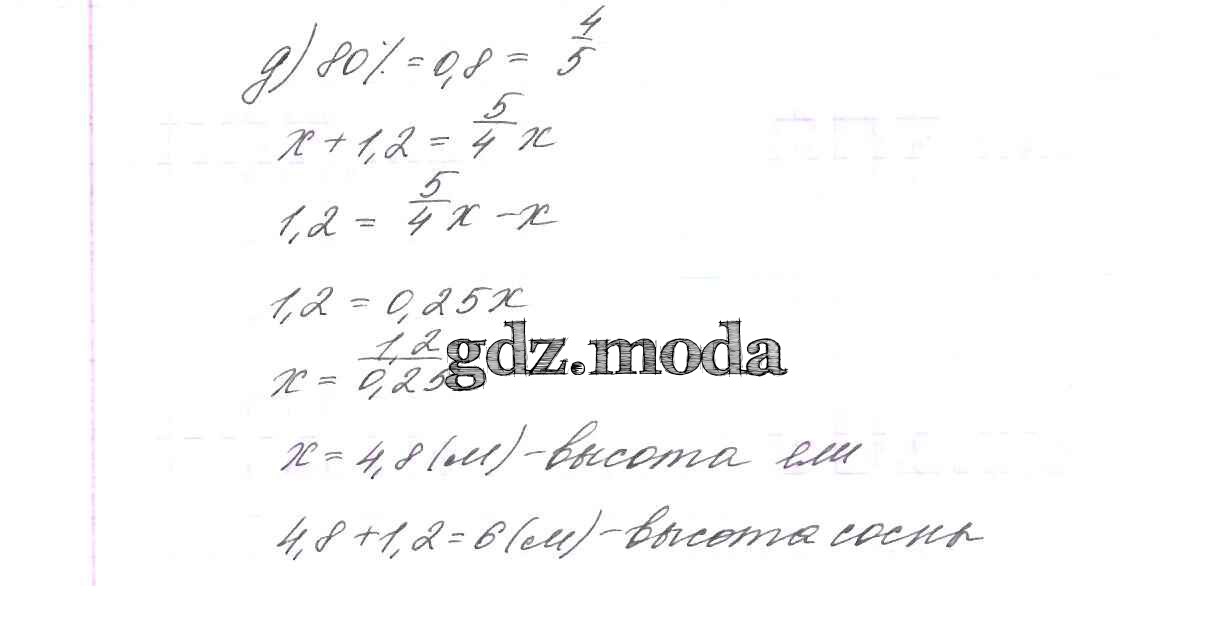 д) 80% = 0,8 = 4/5
x + 1,2 = 5/4 x
1,2 = 5/4 x - x
1,2 = 0,25x
x = 1,2/0,25
gdz.moda
x = 4,8 (м) - высота ели
4,8 + 1,2 = 6 (м) - высота сосны